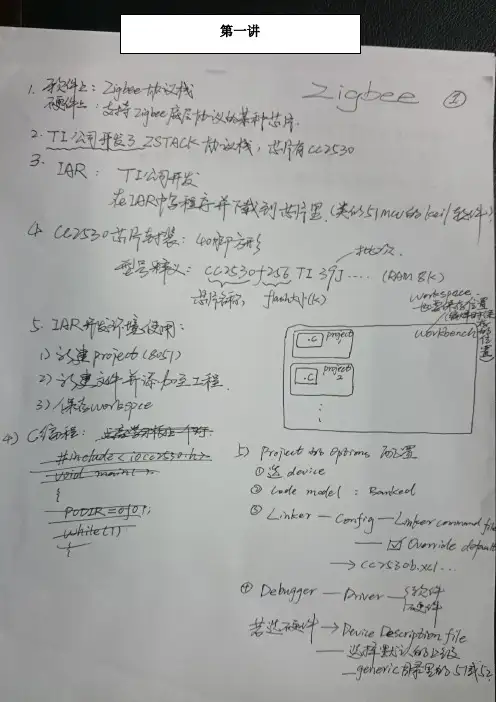 第一讲
Zigbee ①
1. 软件上：Zigbee协议栈
硬件上：支持Zigbee底层协议的某种芯片.
2. TI公司开发了ZSTACK协议栈，芯片有CC2530
3. IAR： TI公司开发
在IAR中写程序并下载到芯片里.(类似51mcu的keil软件)
4. CC2530芯片封装：40脚方形
批次.
型号释义：CC2530f256 TI 39J .... (RAM 8K)
芯片名称, flash大小(K)
5. IAR开发环境使用：
1) 新建project (8051)
2) 新建文件并添加至工程.
3) 保存workspce
workspace
workbench
.C project 1
.C project 2
4) C编程：
#include<ioCC2530.h>
void main( )
{
P0DIR=0x01;
while(1)
}
5) Project 的 Options 配置
① 选 device
② code model : Banked
③ Linker — Config — Linker command file
— ☑ Override default
→ CC2530b.xcl...
④ Debugger — Driver — 软件
硬件
若选硬件 → Device Description file
— 选择默认的上级
— generic目录里的51或52